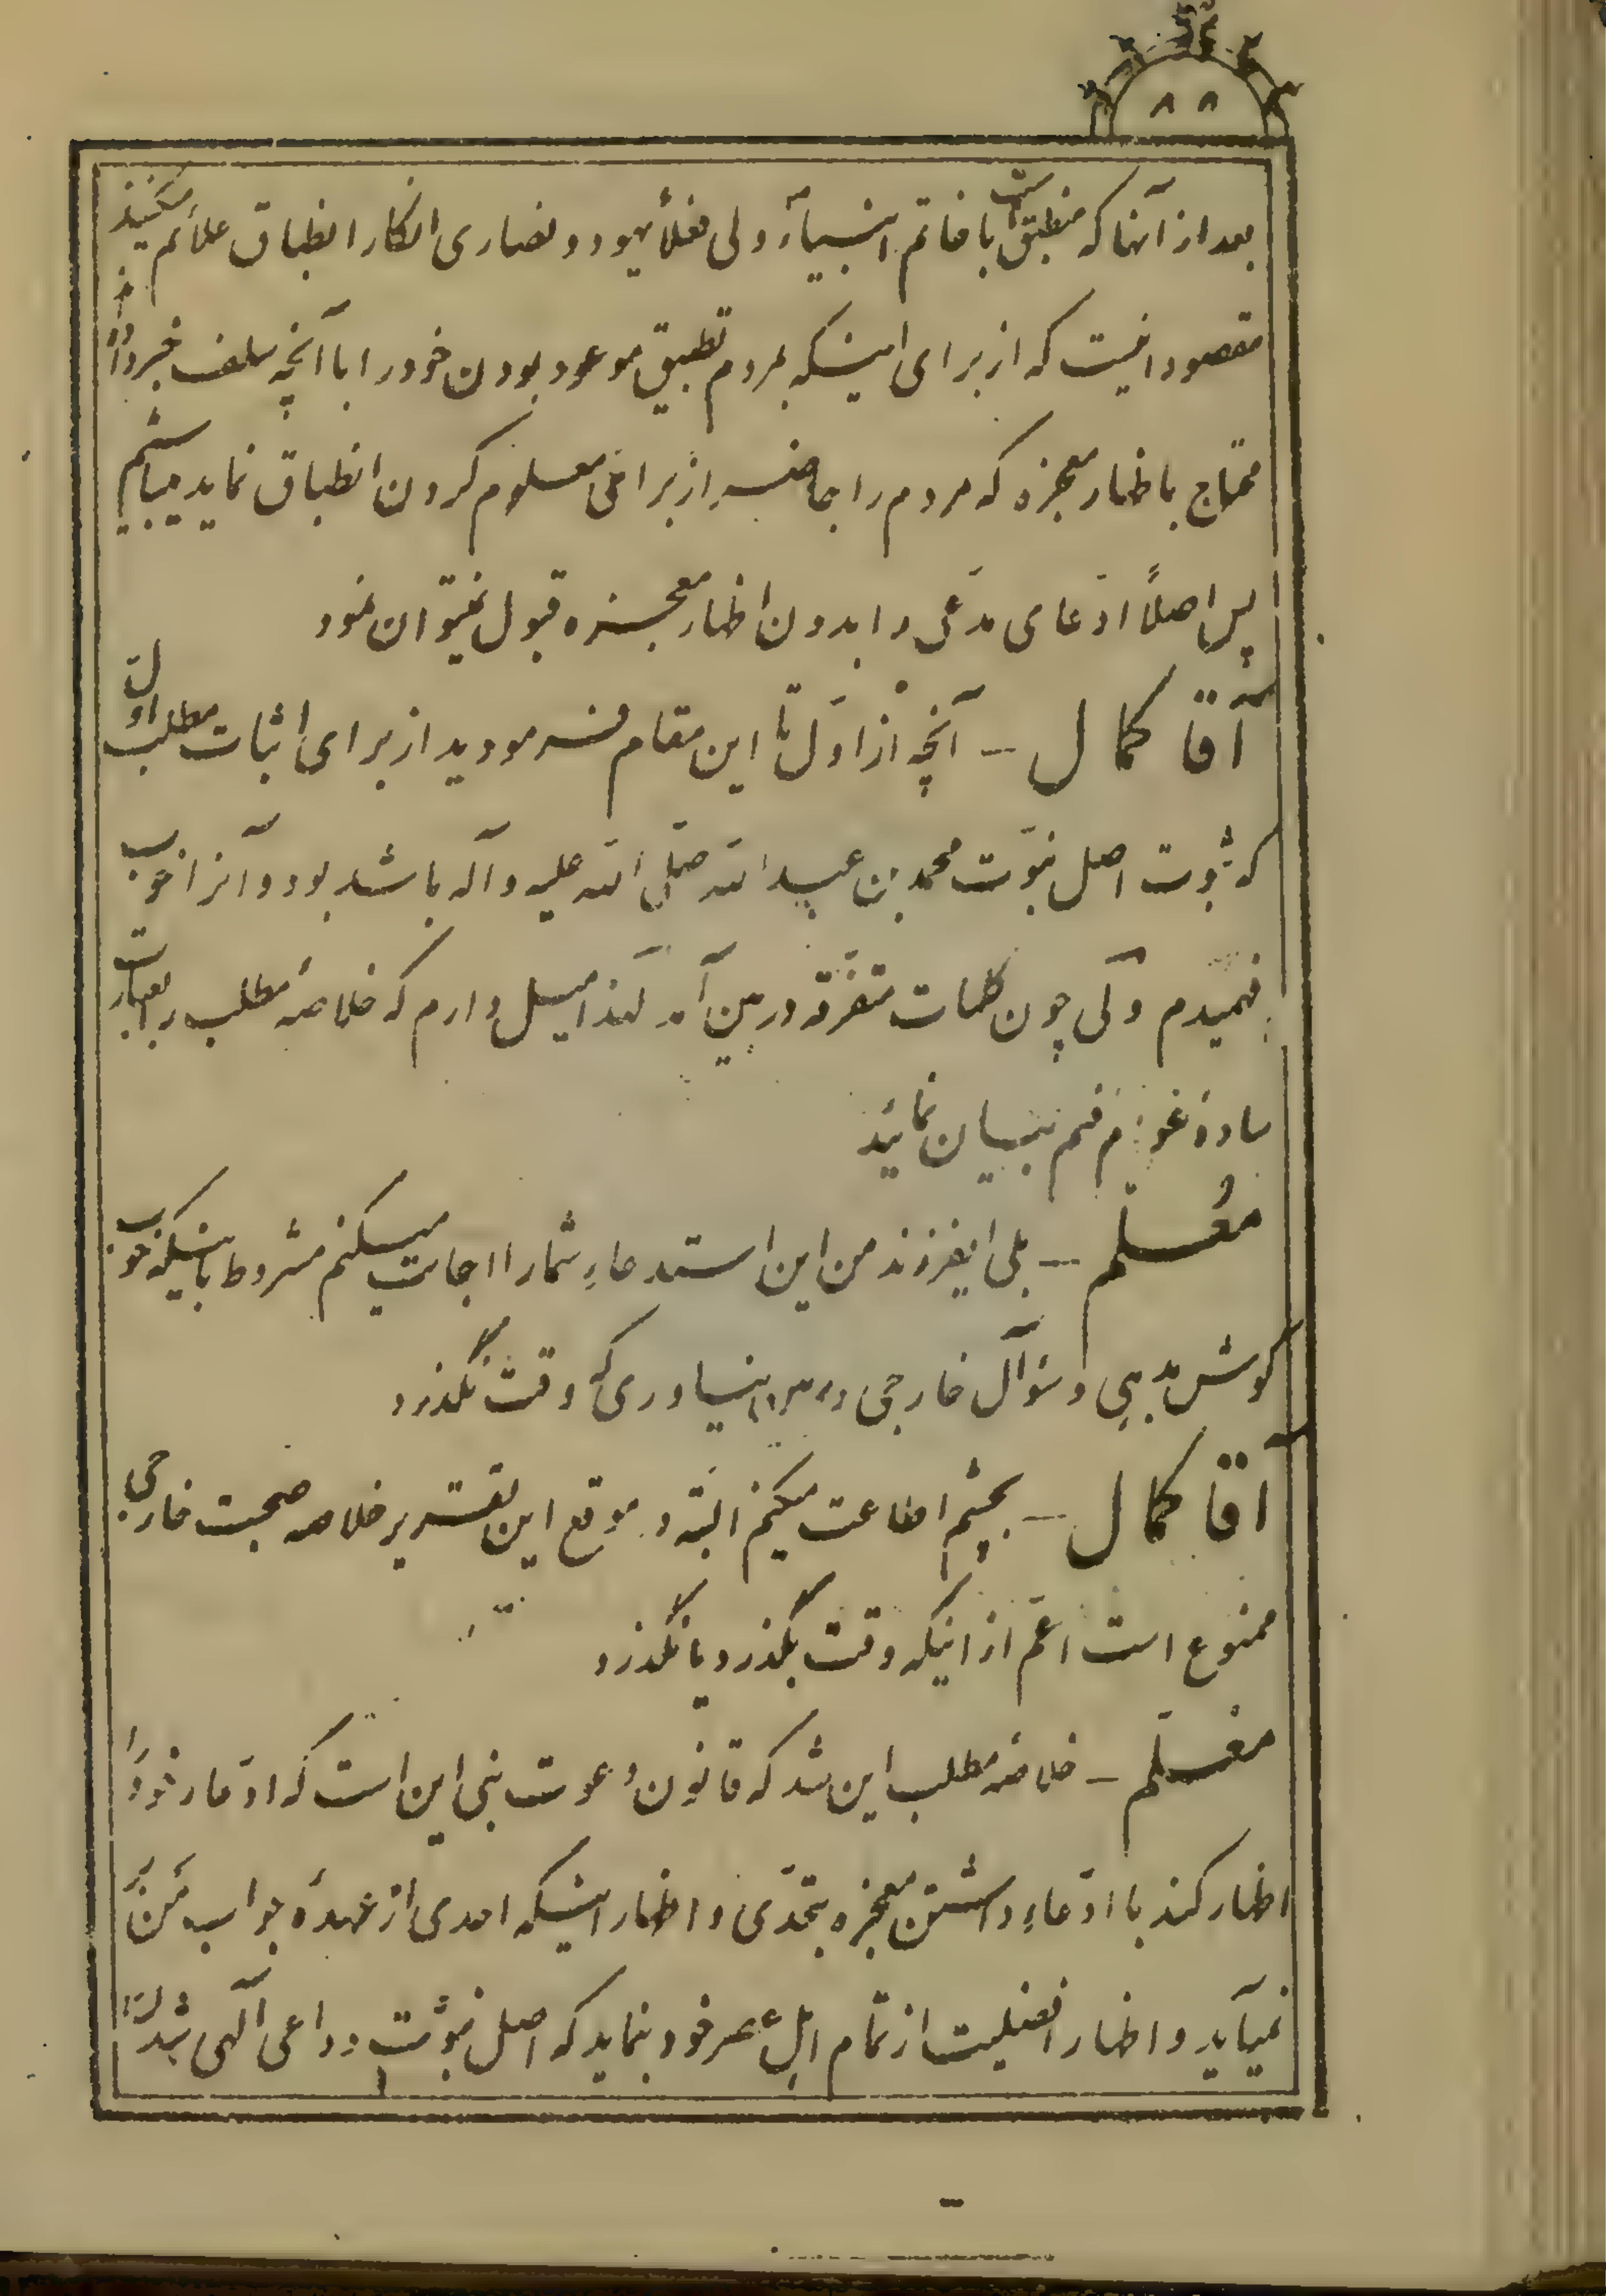 ۸۸
بعد از آنها که منطبق است با خاتم انبیآء ولی فعلاً یهود و نصاری انکار انطباق علائم میکنند
مقصود انیست که از برای اینکه بمردم تطبیق موعود بودن خود را با آنچه سلف خبر داده‌اند
محتاج باظهار معجزه که مردم را حاضر از برای معلوم کردن انطباق نماید میباشیم
پس اصلاً ادّعای مدّعی را بدون اظهار معجزه قبول نمیتوان نمود
آقا کمال – آنچه از اوّل تا این مقام فرمودید از برای اثبات مطلب اوّل
که ثبوت اصل نبوّت محمد بن عبد الله صلّی الله علیه و آله باشد بود و آنرا خوب
فهمیدم ولی چون کلمات متفرّقه در بین آمد لهذا میل دارم که خلاصهٔ مطلب را بعبارت
ساده فهم بیان نمائید
معلّم – بلی ایفرزند من این استدعاء شما را اجابت میکنم مشروط باینکه خوب
گوش بدهی و سؤآل خارجی در میان نیاوری که وقت نگذرد
آقا کمال – بچشم اطاعت میکنم البتّه در موقع این تقریر خلاصه صحبت خارجی
ممنوع است اعمّ از اینکه وقت بگذرد یا نگذرد
معلّم – خلاصهٔ مطلب این شد که قانون دعوت نبی این است که ادّعاء خود را
اظهار کند با ادّعاء داشتن معجزه بتحدّی و اظهار اینکه احدی از عهدهٔ جواب من بر
نمیآید و اظهار افضلیت از تمام اهل عصر خود بنماید که اصل نبوّت و داعی آلهی شدن